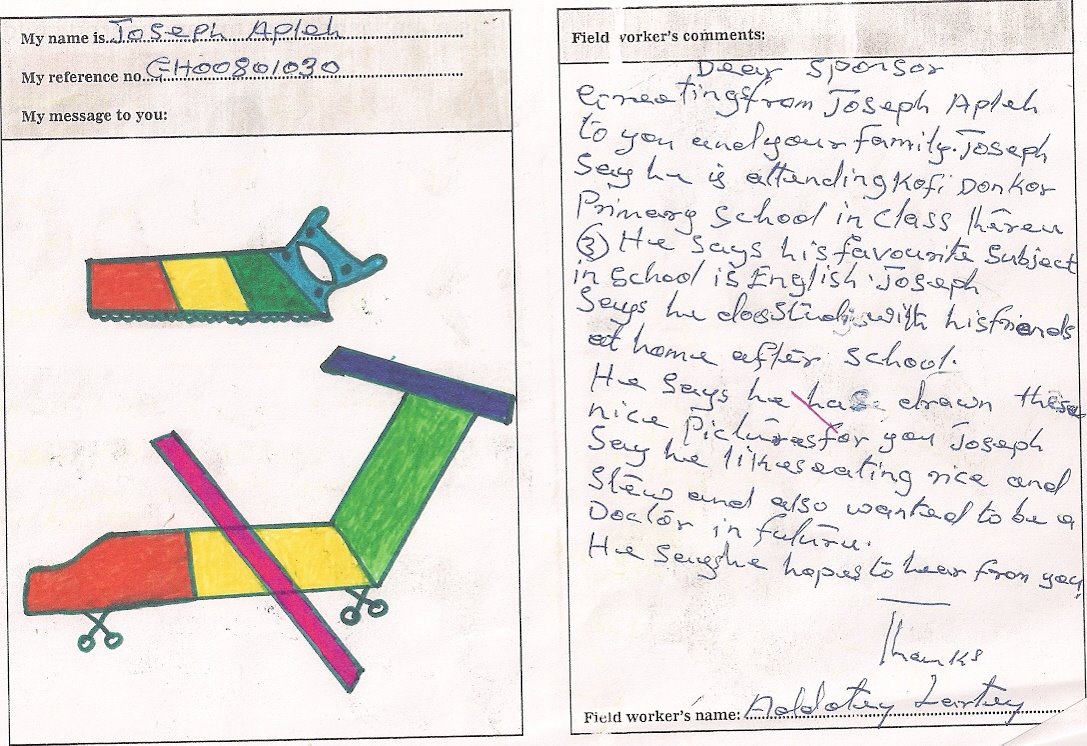 My name is Joseph Apleh
My reference no. GH00801030
My message to you:
Field worker's comments:
Dear Sponsor
Greetings from Joseph Apleh
to you and your family. Joseph
Say he is attending Kofi Donkor
Primary School in Class three
(3) He says his favourite Subject
in School is English. Joseph
Says he does Studies with his friends
at home after School.
He Says he has drawn these
nice Pictures for you Joseph
Say he likes eating rice and
Stew and also wanted to be a
Doctor in future.
He Says he hopes to hear from you
Thanks
Field worker's name: Addotey Lartey